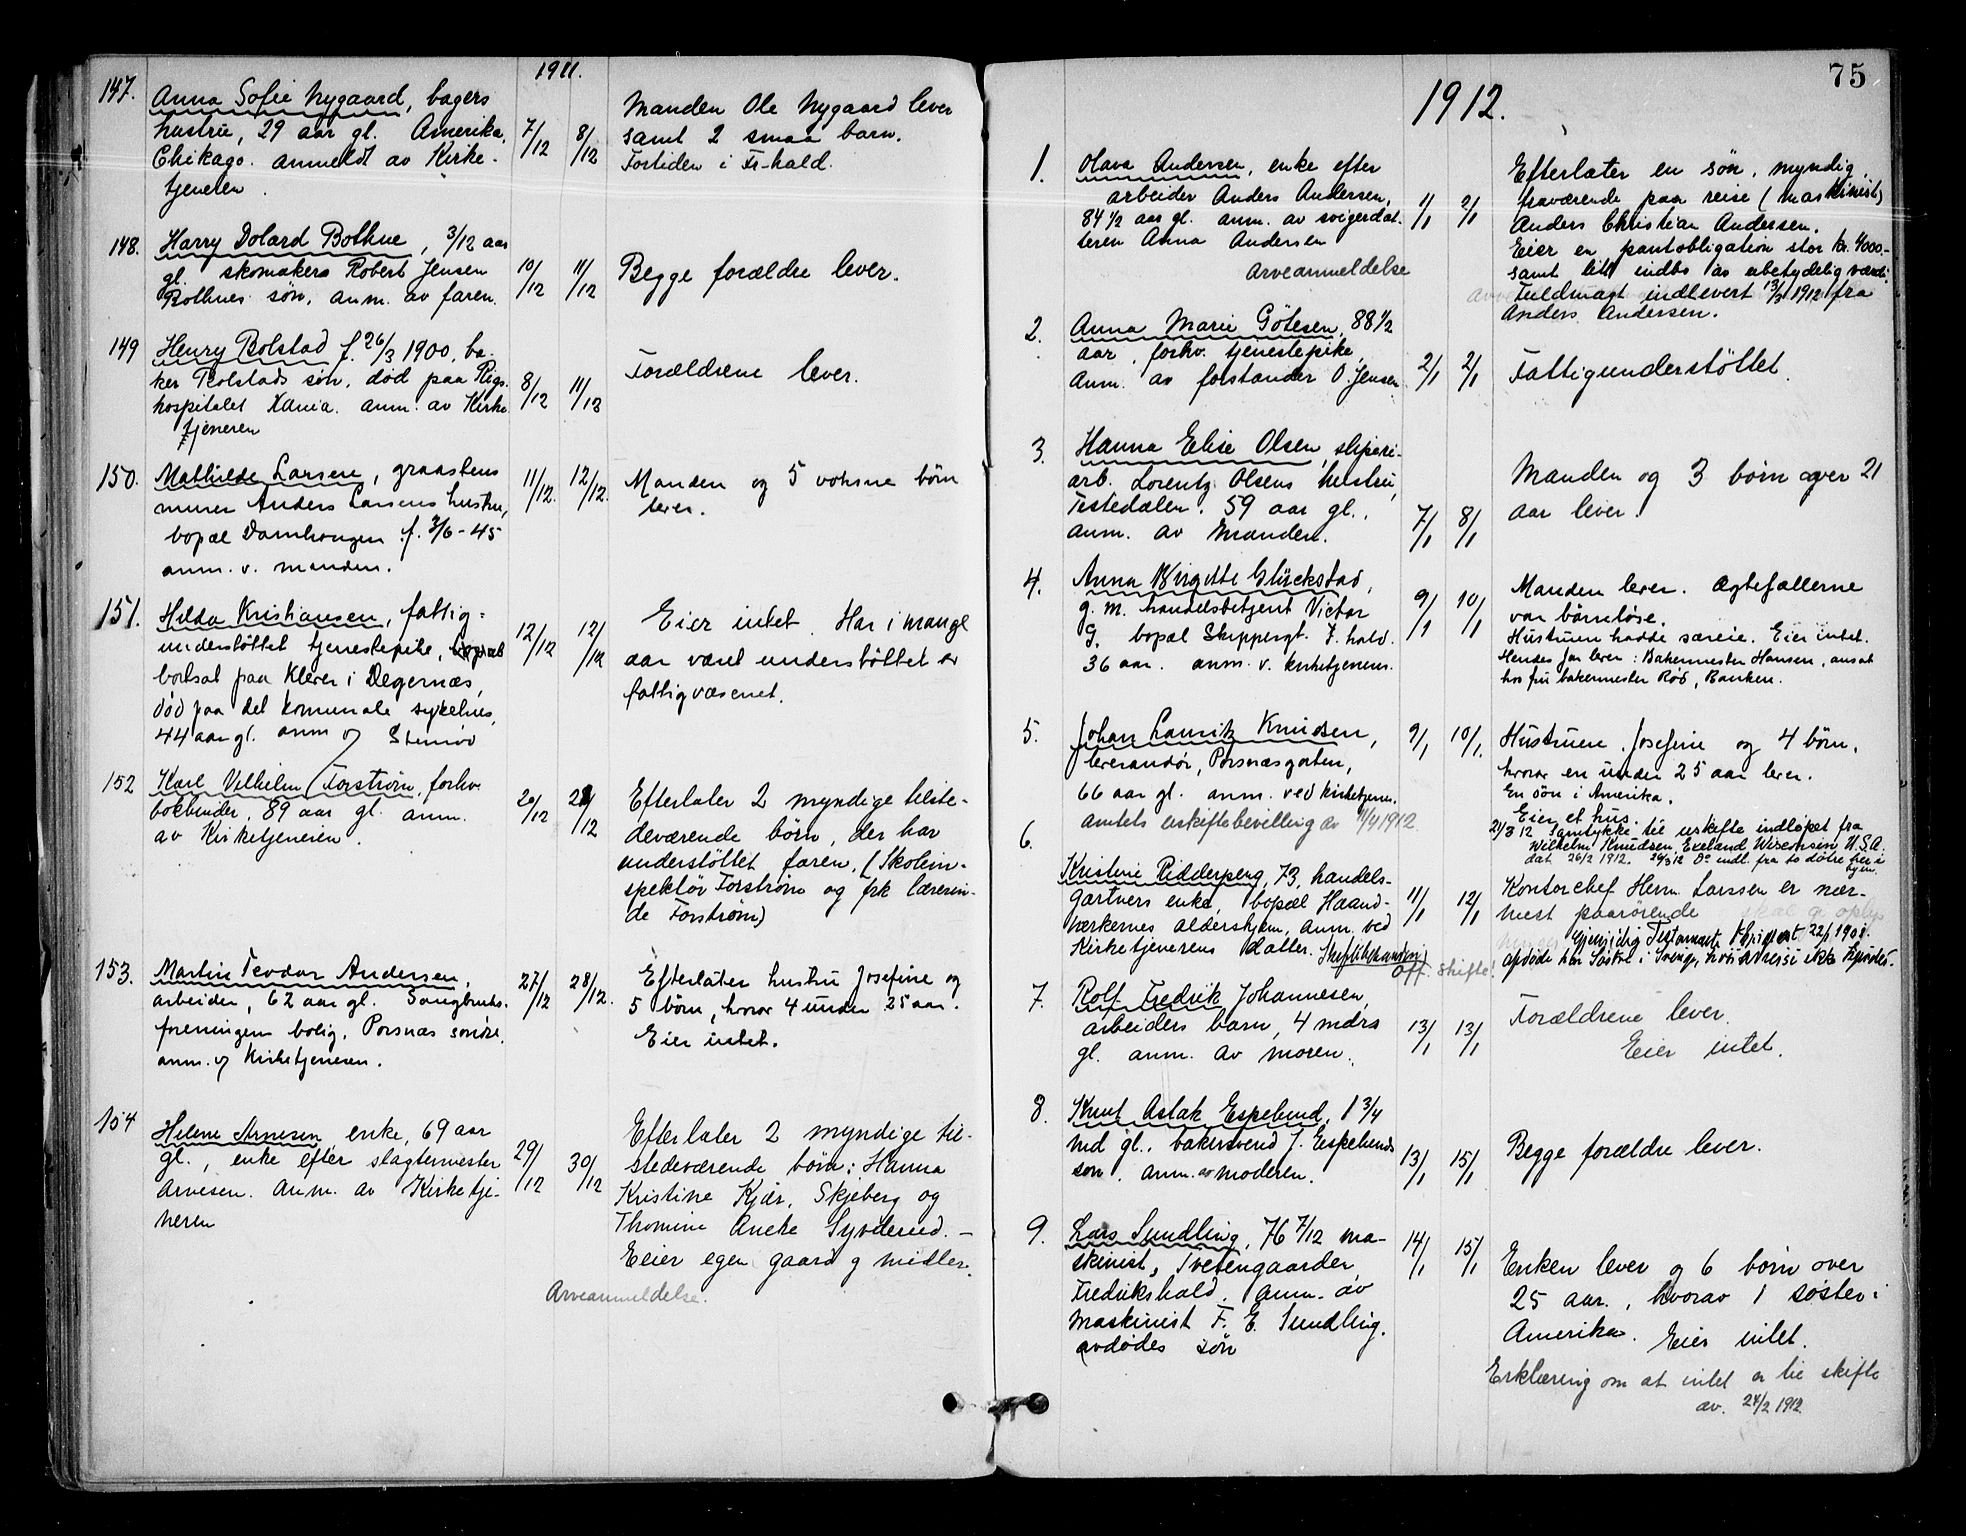 1911.
147. Anna Sofie Nygaard, bagers
hustru, 29 aar gl. Amerika,
Chikago. anmeldt av Kirke-
tjeneren.
7/12 8/12
Manden Ole Nygaard lever
samt 2 smaa barn.
Fortiden i Fr-hald.
148. Harry Dolard Bothne, 3/12 aar
gl. skomakers Robert Jensen
Bothnes søn, anm. av faren.
10/12 11/12
Begge forældre lever.
149 Henry Bolstad f. 26/3 1900, ba-
ker Bolstads søn, død paa Rigs-
hospitalet Xania. anm. av Kirke
tjeneren
8/12 11/12
Forældrene lever.
150. Mathilde Larsen, graastens
murer Anders Larsens hustru,
bopæl Damhaugen f. 3/6-45
anm. v. manden.
11/12. 12/12.
Manden og 5 voksne børn
lever.
151. Hilda Kristiansen, fattig-
understøttet tjenestepike,
bortsat paa Klever i Degernæs,
død paa det komunale sykehus,
44 aar gl. anm og
12/12 12/12
Eier intet. Har i mange
aar været understøttet av
fattigvæsenet.
152 Karl Vilhelm Forstrøm, forhv.
bokbinder, 89 aar gl. anm.
av Kirketjeneren.
20/12 28/12
Efterlater 2 myndige tilste-
deværende børn, der har
understøttet faren, (Skolein-
spektør Forstrøm og frk lærerin-
de Forstrøm)
153. Martin Teodor Andersen,
arbeider, 62 aar gl. Saugbruks-
foreningens bolig, Porsnæs søndre.
anm. og Kirketjeneren.
27/12 28/12.
Efterlater hustru Josefine og
5 børn, hvorav 4 under 25 aar.
Eier intet.
154 Helene Arnesen enke, 69 aar
gl., enke efter slagtermester
Arnesen. Anm. av Kirketje-
neren
29/12 30/12
Efterlater 2 myndige til-
stedeværende børn: Hanna
Kristine Kjær, Skjeberg og
Thomine Aneke Syvderud. -
Eier egen gaard og midler.
Arveanmeldelse.
75
1912.
1. Olava Andersen, enke efter
arbeider Anders Andersen,
84 1/2 aar gl. anm. av svigerdat-
teren Anna Andersen
Arveanmeldelse
1/1 2/1
Efterlater en søn, myndig,
fraværende paa reise (maskinist)
Anders Christian Andersen.
Eier en pantobligation stor kr. 4000-
samt litt indbo av ubetydelig værdi.
Fuldmagt indlevert 13/3 1912 fra
Anders Andersen.
2. Anna Marie Götesen, 88 1/2
aar, forhv. tjenestepike,
Anm. av forstander O. Jensen
2/1 2/1
Fattigunderstøttet.
3. Hanna Elise Olsen, sliperi-
arb. Lorentz Olsens hustru,
Tistedalen. 59 aar gl.,
anm. av Manden.
7/1 8/1
Manden og 3 børn over 21
aar lever.
4. Anna Birgitte Glückstad,
g. m. handelsbetjent Victor
G. bopæl Skippergt. F.hald.
36 aar. anm. v. kirketjeneren.
9/1 10/1
Manden lever. Ægtefællerne
var børnløse.
Hustruen hadde særeie. Eier intet.
Hendes far lever: Bakermester Hansen, ansat
hos fru bakermester Rød, Banken.
5. Johan Lauritz Knudsen,
leverandør, Porsnæsgaten,
66 aar gl. anm. ved kirketjener.
amtets uskiftebevilling av 11/4 1912.
9/1 10/1.
Hustruen Josefine og 4 børn,
hvorav en under 25 aar lever.
En søn i Amerika.
Eier et hus.
21/3 12 Samtykke til uskifte indløpet fra
Wilhelm Knudsen, Exeland Wisconsin U.S.A.
dat. 26/2 1912. 26/3 12 Do indl. fra to døtre her i
byen.
6.
Kristine Ridderperg, 73, handels-
gartners enke, bopæl Haand-
værkernes aldershjem, anm. ved
Kirketjenerens datter.
Off. Skifte!
11/1 12/1
Kontorchef Herm. Larssen er nær-
mest paarørende
Gjensidig Testamente 22/1 1908.
7. Rolf Fredrik Johannesen,
arbeiders barn, 4 mdrs
gl. anm. av moren.
13/1 13/1
Forældrene lever.
Eier intet.
8. Knut Aslak Espelund, 1 3/4
md gl., bakersvend J. Espelunds
søn. anm. av moderen.
13/1 15/1
Begge forældre lever.
9. Lars Sundling, 76 7/12 ma-
skinist, Tvetengaarden,
Fredrikshald. Anm. av
Maskinist F. E. Sundling.
avdødes søn
14/1 15/1
Enken lever og 6 børn over
25 aar., hvorav 1 søster i
Amerika. Eier intet.
Erklæring om at intet er til skifte
av. 24/2 1912